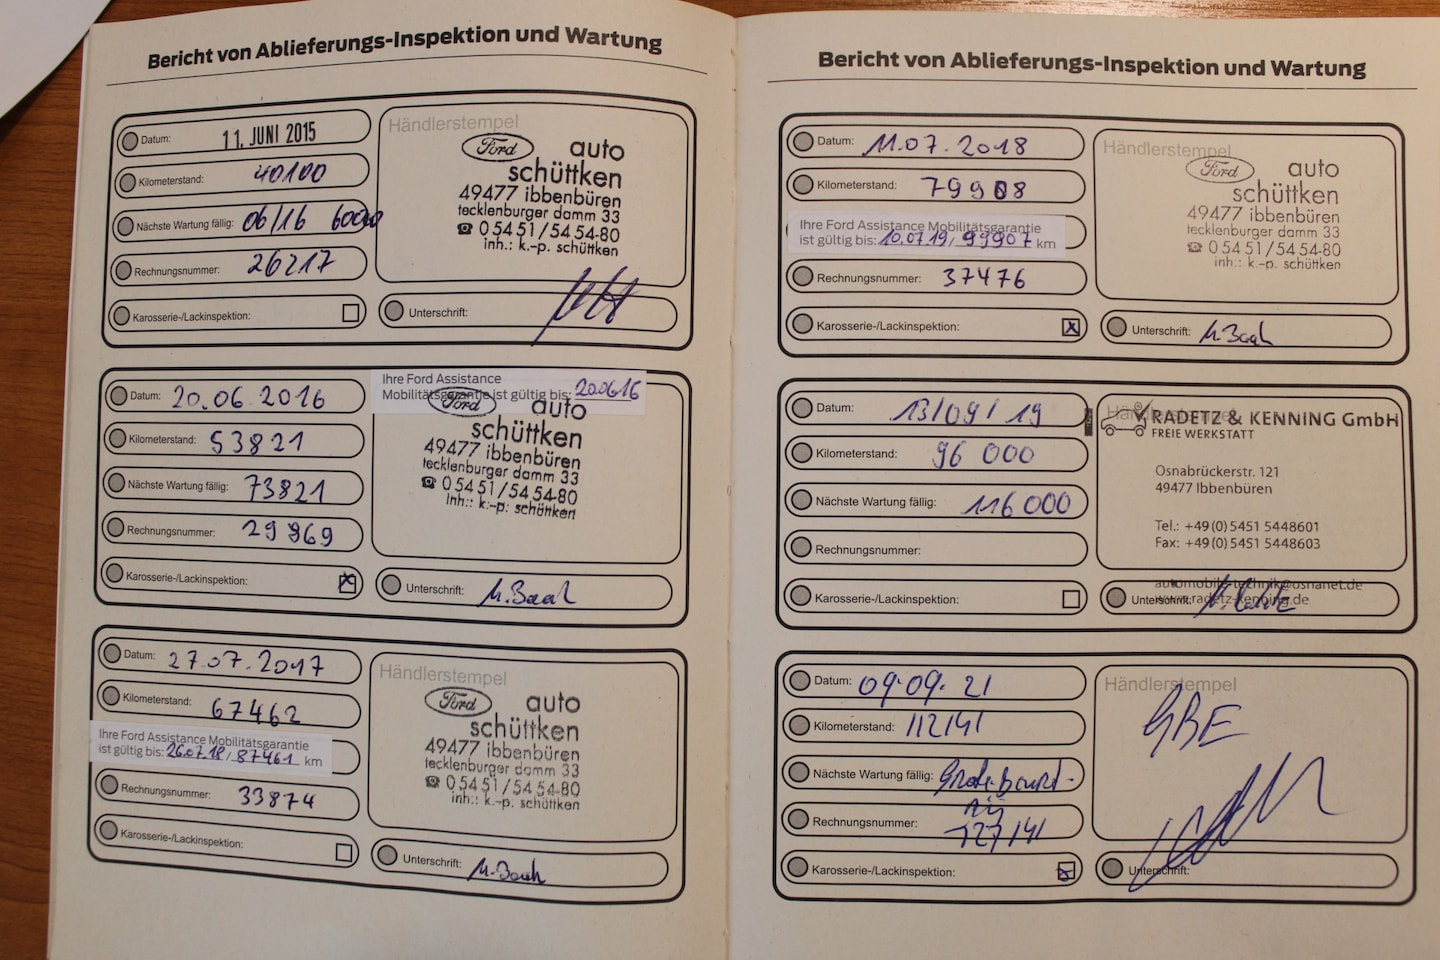 Bericht von Ablieferungs-Inspektion und Wartung
Datum: 11. JUNI 2015
Kilometerstand: 40100
Nächste Wartung fällig: 06/16 60000
Rechnungsnummer: 26217
Karosserie-/Lackinspektion:
Händlerstempel
Ford auto
schüttken
49477 ibbenbüren
tecklenburger damm 33
☎ 0 54 51 / 54 54-80
inh.: k.-p. schüttken
Unterschrift:
Datum: 20.06.2016
Kilometerstand: 53821
Nächste Wartung fällig: 73821
Rechnungsnummer: 29969
Karosserie-/Lackinspektion: x
Ihre Ford Assistance
Mobilitätsgarantie ist gültig bis: 20.06.16
Ford auto
schüttken
49477 ibbenbüren
tecklenburger damm 33
☎ 0 54 51 / 54 54-80
inh.: k.-p. schüttken
Unterschrift:
Datum: 27.07.2017
Kilometerstand: 67462
Ihre Ford Assistance Mobilitätsgarantie
ist gültig bis: 26.07.18 / 87461 km
Rechnungsnummer: 33874
Karosserie-/Lackinspektion:
Händlerstempel
Ford auto
schüttken
49477 ibbenbüren
tecklenburger damm 33
☎ 0 54 51 / 54 54-80
inh.: k.-p. schüttken
Unterschrift:
Bericht von Ablieferungs-Inspektion und Wartung
Datum: 11.07.2018
Kilometerstand: 79908
Ihre Ford Assistance Mobilitätsgarantie
ist gültig bis: 10.07.19 / 99907 km
Rechnungsnummer: 37476
Karosserie-/Lackinspektion: x
Händlerstempel
Ford auto
schüttken
49477 ibbenbüren
tecklenburger damm 33
☎ 0 54 51 / 54 54-80
inh.: k.-p. schüttken
Unterschrift:
Datum: 13/09/19
Kilometerstand: 96 000
Nächste Wartung fällig: 116 000
Rechnungsnummer:
Karosserie-/Lackinspektion:
Händlerstempel
RADETZ & KENNING GmbH
FREIE WERKSTATT
Osnabrückerstr. 121
49477 Ibbenbüren
Tel.: +49 (0) 5451 5448601
Fax: +49 (0) 5451 5448603
automobile-technik@osnanet.de
www.radetz-kenning.de
Unterschrift:
Datum: 09.09.21
Kilometerstand: 112141
Nächste Wartung fällig:
Rechnungsnummer: 127141
Karosserie-/Lackinspektion: x
Händlerstempel
GBE
Unterschrift: